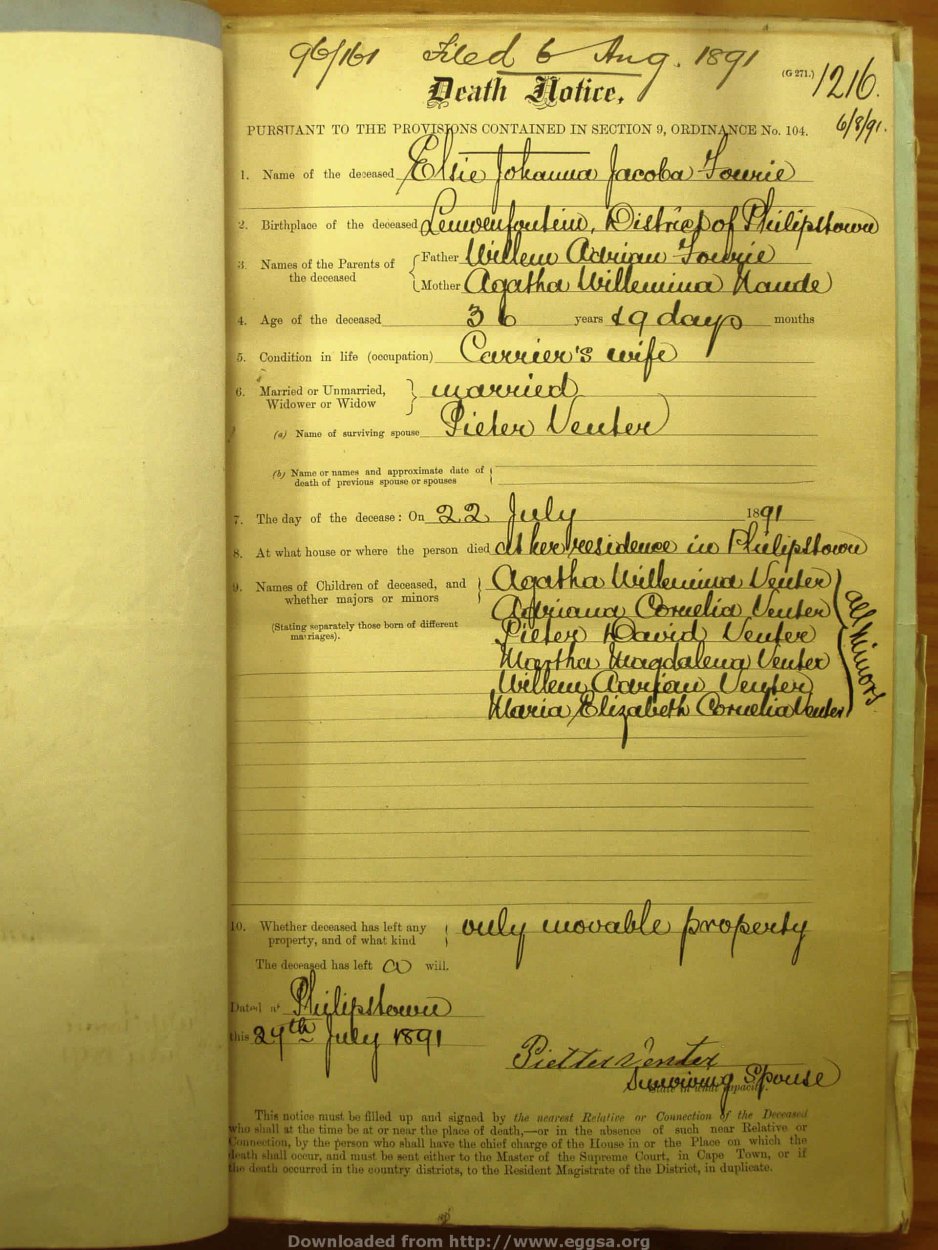 96/161 Filed 6 Aug. 1891
(G 271.) 1216.
Death Notice,
6/8/91.
PURSUANT TO THE PROVISIONS CONTAINED IN SECTION 9, ORDINANCE No. 104.
1. Name of the deceased Elsie Johanna Jacoba Fourie
2. Birthplace of the deceased Leuwenfontein, District of Philipstown
3. Names of the Parents of the deceased { Father Willem Adrian Fourie
{ Mother Agatha Willemina Naude
4. Age of the deceased 36 years & 9 days months
5. Condition in life (occupation) Carrier's wife
6. Married or Unmarried, Widower or Widow } married
(a) Name of surviving spouse Pieter Venter
(b) Name or names and approximate date of death of previous spouse or spouses
7. The day of the decease: On 22 July 1891
8. At what house or where the person died at her residence in Philipstown
9. Names of Children of deceased, and whether majors or minors
(Stating separately those born of different marriages).
Agatha Willemina Venter
Adriana Cornelia Venter
Pieter David Venter
Martha Magdalena Venter
Willem Adrian Venter
Maria Elizabeth Cornelia Venter
all minors
10. Whether deceased has left any property, and of what kind } only movable property
The deceased has left a will.
Dated at Philipstown
this 29th July 1891
Pietter Venter
Surviving Spouse
State in what capacity.
This notice must be filled up and signed by the nearest Relative or Connection of the Deceased
who shall at the time be at or near the place of death,—or in the absence of such near Relative or
Connection, by the person who shall have the chief charge of the House in or the Place on which the
death shall occur, and must be sent either to the Master of the Supreme Court, in Cape Town, or if
the death occurred in the country districts, to the Resident Magistrate of the District, in duplicate.
Downloaded from http://www.eggsa.org